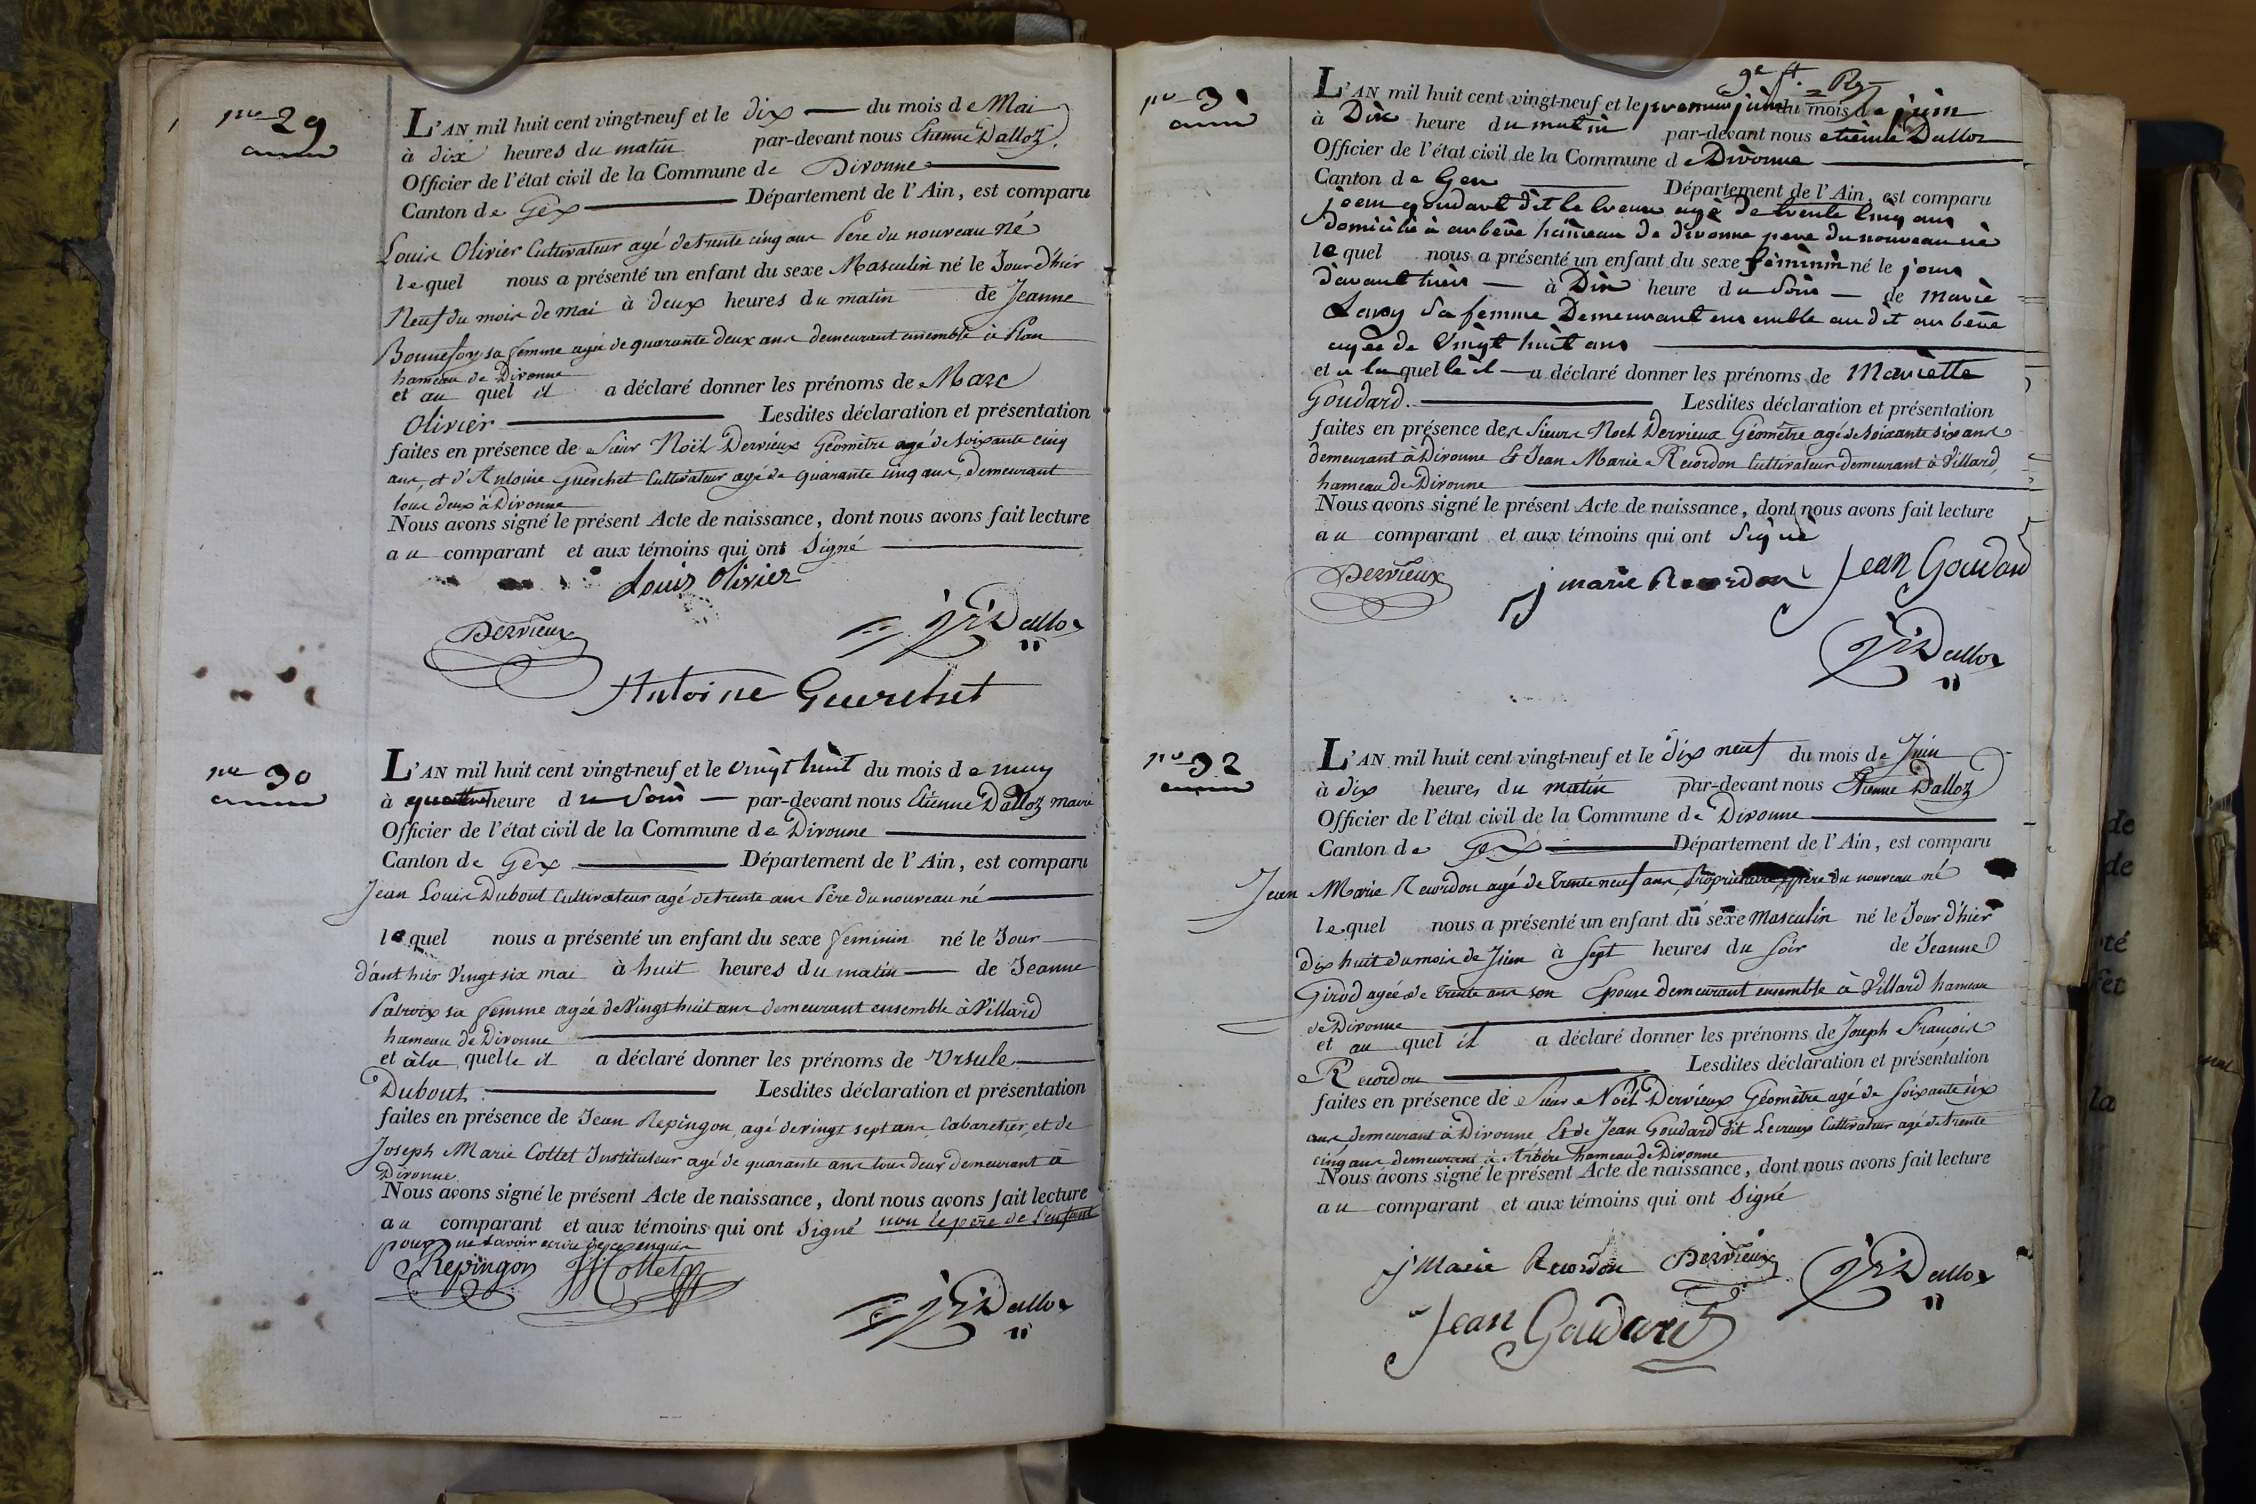 no 29
L'AN mil huit cent vingt-neuf et le dix du mois de Mai
à dix heures du matin par-devant nous Etienne Dalloz,
Officier de l'état civil de la Commune de Divonne
Canton de Gex Département de l'Ain, est comparu
Louis Olivier Cultivateur agé de trente cinq ans Père du nouveau né
lequel nous a présenté un enfant du sexe Masculin né le Jour d'hier
Neuf du mois de mai à deux heures du matin de Jeanne
Bonnefoy sa femme agée de quarante deux ans demeurant ensemble à Plan
hameau de Divonne
et au quel il a déclaré donner les prénoms de Marc
Olivier Lesdites déclaration et présentation
faites en présence de Sieur Noël Dervieux Géomètre agé de soixante cinq
ans, et d'Antoine Guerchet Cultivateur agé de quarante cinq ans, demeurant
tous deux à Divonne
Nous avons signé le présent Acte de naissance, dont nous avons fait lecture
au comparant et aux témoins qui ont Signé
Louis Olivier
Dervieux Dalloz
Antoine Guerchet
no 30
L'AN mil huit cent vingt-neuf et le vingt huit du mois de may
à quattre heure du Soir par-devant nous Etienne Dalloz maire
Officier de l'état civil de la Commune de Divonne
Canton de Gex Département de l'Ain, est comparu
Jean Louis Dubout Cultivateur agé de trente ans Père du nouveau né
lequel nous a présenté un enfant du sexe feminin né le Jour
d'ant hier Vingt six mai à huit heures du matin de Jeanne
Patroix sa femme agée de Vingt huit ans demeurant ensemble à Villard
hameau de Divonne
et à la quelle il a déclaré donner les prénoms de Ursule
Dubout. Lesdites déclaration et présentation
faites en présence de Jean Repingon, agé de vingt sept ans, Cabaretier, et de
Joseph Marie Cottet Instituteur agé de quarante ans tous deux demeurant à
Divonne
Nous avons signé le présent Acte de naissance, dont nous avons fait lecture
au comparant et aux témoins qui ont Signé non le père de l'enfant
pour ne savoir ecrire de ce enquis
Repingon Cottet
Dalloz
no 31
L'AN mil huit cent vingt-neuf et le premier juin du mois de juin
à Dix heure du matin par-devant nous etienne Dalloz
Officier de l'état civil de la Commune de Divonne
Canton de Gex Département de l'Ain, est comparu
jean goudard dit le creux agé de trente cinq ans
domicilié à arbere hameau de divonne pere du nouveau né
lequel nous a présenté un enfant du sexe féminin né le jour
davant hier à Dix heure du Soir de marie
Lavoy Sa femme Demeurant ensemble au dit arbere
agée de Vingt huit ans
et a la quel le il a déclaré donner les prénoms de Mariette
Goudard. Lesdites déclaration et présentation
faites en présence des Sieurs Noel Dervieux Géomètre agé de soixante six ans
demeurant à Divonne Et Jean Marie Recordon Cultivateur demeurant à Villard,
hameau de Divonne
Nous avons signé le présent Acte de naissance, dont nous avons fait lecture
au comparant et aux témoins qui ont Signé
Dervieux j marie Recordon Jean Goudard
Dalloz
no 32
L'AN mil huit cent vingt-neuf et le dix neuf du mois de Juin
à dix heures du matin par-devant nous Etienne Dalloz
Officier de l'état civil de la Commune de Divonne
Canton de Gex Département de l'Ain, est comparu
Jean Marie Recordon agé de trente neuf ans, Propriétaire, père du nouveau né
lequel nous a présenté un enfant du sexe Masculin né le Jour d'hier
dix huit du mois de Juin à Sept heures du Soir de Jeanne
Girod agée de trente ans son Epouse demeurant ensemble à Villard hameau
de Divonne
et au quel il a déclaré donner les prénoms de Joseph François
Recordon Lesdites déclaration et présentation
faites en présence de Sieur Noël Dervieux Géomètre agé de soixante six
ans, demeurant à Divonne, Et de Jean Goudard dit Lecreux Cultivateur agé de trente
cinq ans demeurant à Arbère hameau de Divonne
Nous avons signé le présent Acte de naissance, dont nous avons fait lecture
au comparant et aux témoins qui ont Signé
j Marie Recordon Dervieux Dalloz
Jean Goudard